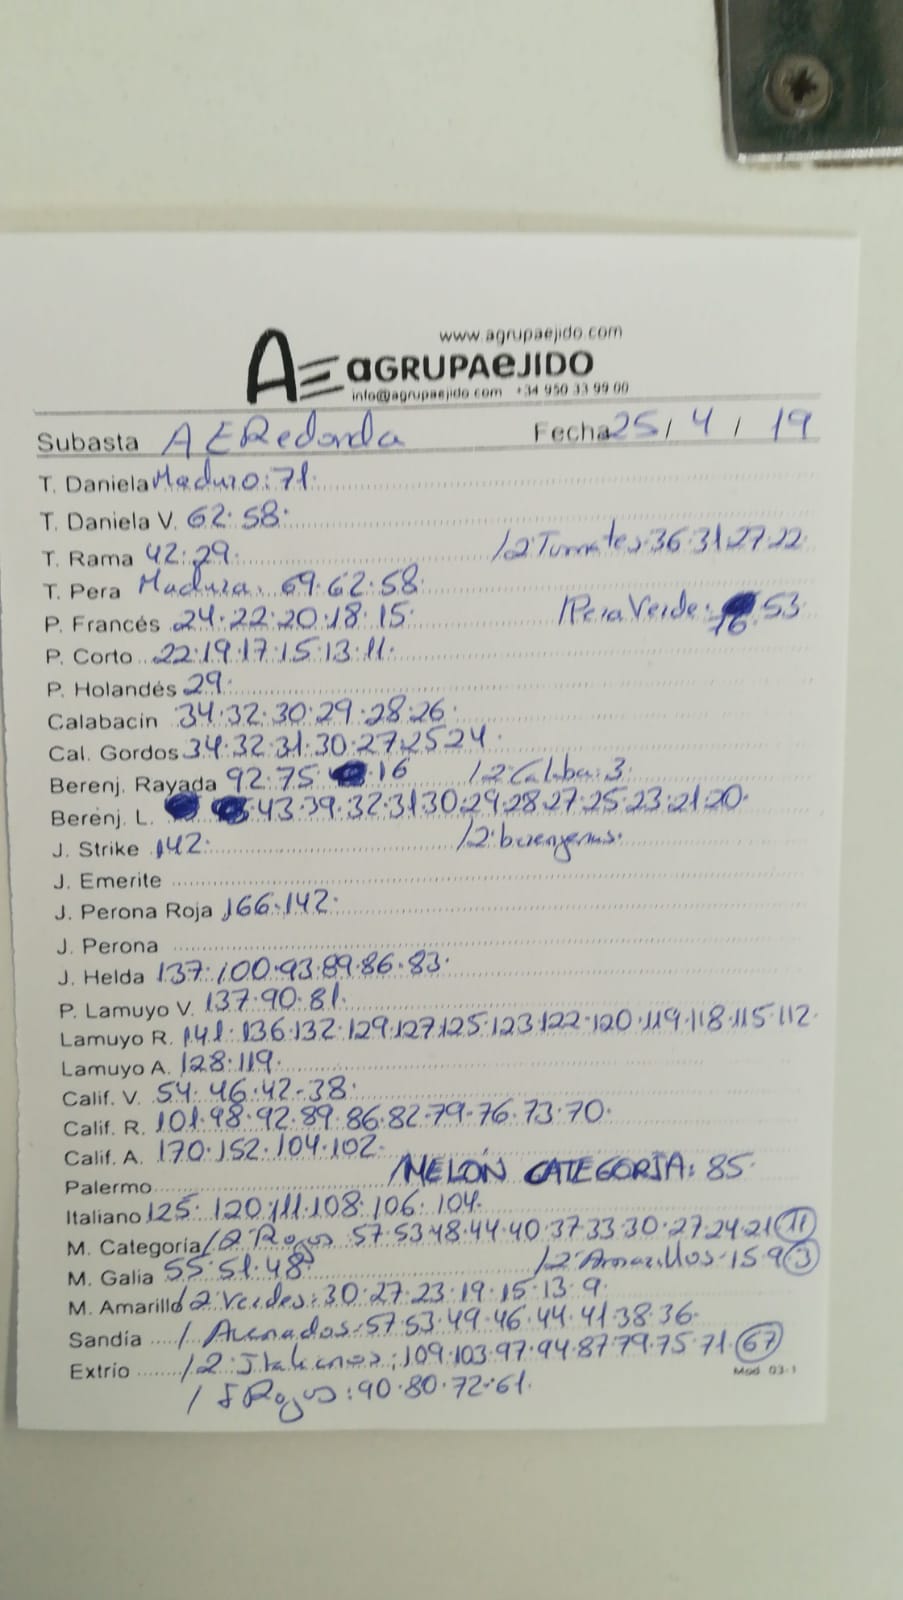 www.agrupaejido.com
AE aGRUPAeJIDO
info@agrupaejido.com +34 950 33 99 00
Subasta A E Redonda Fecha 25 / 4 / 19
T. Daniela Maduro: 71.
T. Daniela V. 62. 58.
T. Rama 42. 29. /2 Tomates. 36. 31. 27. 22
T. Pera Madura. 69. 62. 58.
P. Francés 24. 22. 20. 18. 15. /Pera Verde. 76. 53
P. Corto 22. 19. 17. 15. 13. 11.
P. Holandés 29.
Calabacín 34. 32. 30. 29. 28. 26.
Cal. Gordos 34. 32. 31. 30. 27. 25 24.
Berenj. Rayada 92. 75. 16 /2 Calaba: 3.
Berenj. L. 43. 39. 32. 31 30. 29. 28. 27. 25. 23. 21. 20.
J. Strike 142. /2 berengenas.
J. Emerite
J. Perona Roja 166. 142.
J. Perona
J. Helda 137. 100. 93. 89. 86. 83.
P. Lamuyo V. 137. 90. 81.
Lamuyo R. 141. 136. 132. 129. 127. 125. 123. 122. 120. 119. 118. 115. 112.
Lamuyo A. 128. 119.
Calif. V. 54. 46. 42. 38.
Calif. R. 101. 98. 92. 89. 86. 82. 79. 76. 73. 70.
Calif. A. 170. 152. 104. 102.
Palermo /MELÓN CATEGORÍA: 85.
Italiano 125. 120. 111. 108. 106. 104.
M. Categoría /2 Rojos 57. 53. 48. 44. 40. 37. 33. 30. 27. 24. 21 11
M. Galia 55. 51. 48. /2 Amarillos. 15. 9 3
M. Amarillo /2 Verdes: 30. 27. 23. 19. 15. 13. 9.
Sandía / Asurados. 57. 53. 49. 46. 44. 41. 38. 36.
Extrío /2 Italianos: 109. 103. 97. 94. 87. 79. 75. 71. 67
Mod. 03-1
/ Rojos: 90. 80. 72. 61.